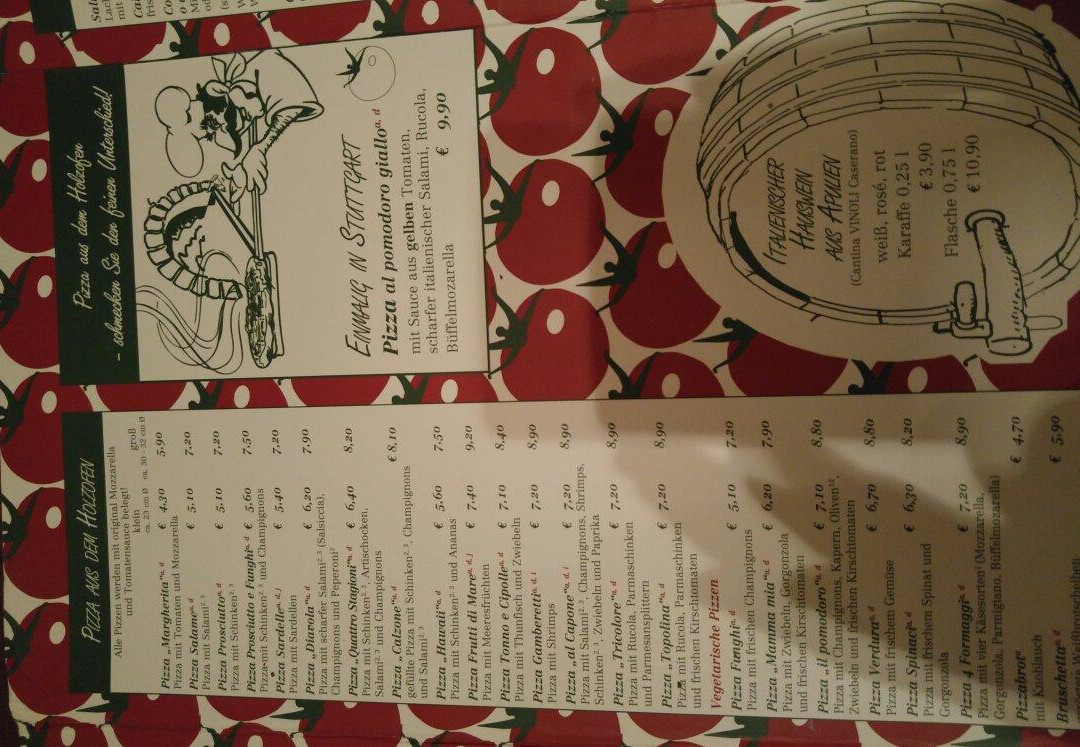 Pizza aus dem Holzofen
– schmecken Sie den feinen Unterschied!
EINMALIG IN STUTTGART
Pizza al pomodoro giallo a, d
mit Sauce aus gelben Tomaten,
scharfer italienischer Salami, Rucola,
Büffelmozarella € 9,90
ITALIENISCHER
HAUSWEIN
AUS APULIEN
(Cantina VINOLI Caserano)
weiß, rosé, rot
Karaffe 0,25 l
€ 3,90
Flasche 0,75 l
€ 10,90
PIZZA AUS DEM HOLZOFEN
Alle Pizzen werden mit original Mozzarella
und Tomatensauce belegt!
klein groß
ca. 23 cm Ø ca. 30 - 32 cm Ø
Pizza „Margherita“ a, d € 4,30 5,90
Pizza mit Tomaten und Mozzarella
Pizza Salame a, d € 5,10 7,20
Pizza mit Salami 2, 3
Pizza Prosciutto a, d € 5,10 7,20
Pizza mit Schinken 2, 3
Pizza Prosciutto e Funghi a, d € 5,60 7,50
Pizza mit Schinken 2, 3 und Champignons
Pizza Sardelle a, d, j € 5,40 7,20
Pizza mit Sardellen
Pizza „Diavola“ a, d € 6,20 7,90
Pizza mit scharfer Salami 2, 3 (Salsiccia),
Champignons und Peperoni 2
Pizza „Quattro Stagioni“ a, d € 6,40 8,20
Pizza mit Schinken 2, 3, Artischocken,
Salami 2, 3 und Champignons
Pizza „Calzone“ a, d € 8,10
gefüllte Pizza mit Schinken 2, 3, Champignons
und Salami 2, 3
Pizza „Hawaii“ a, d € 5,60 7,50
Pizza mit Schinken 2, 3 und Ananas
Pizza Frutti di Mare a, d, j € 7,40 9,20
Pizza mit Meeresfrüchten
Pizza Tonno e Cipolle a, d € 7,10 8,40
Pizza mit Thunfisch und Zwiebeln
Pizza Gamberetti a, d, i € 7,20 8,90
Pizza mit Shrimps
Pizza „al Capone“ a, d, i € 7,20 8,90
Pizza mit Salami 2, 3, Champignons, Shrimps,
Schinken 2, 3, Zwiebeln und Paprika
Pizza „Tricolore“ a, d € 7,20 8,90
Pizza mit Rucola, Parmaschinken
und Parmesansplittern
Pizza „Topolina“ a, d € 7,20 8,90
Pizza mit Rucola, Parmaschinken
und frischen Kirschtomaten
Vegetarische Pizzen
Pizza Funghi a, d € 5,10 7,20
Pizza mit frischen Champignons
Pizza „Mamma mia“ a, d € 6,20 7,90
Pizza mit Zwiebeln, Gorgonzola
und frischen Kirschtomaten
Pizza „il pomodoro“ a, d € 7,10 8,80
Pizza mit Champignons, Kapern, Oliven 12,
Zwiebeln und frischen Kirschtomaten
Pizza Verdura a, d € 6,70 8,80
Pizza mit frischem Gemüse
Pizza Spinaci a, d € 6,30 8,20
Pizza mit frischem Spinat und
Gorgonzola
Pizza 4 Formaggi a, d € 7,20 8,90
Pizza mit vier Käsesorten 1 (Mozzarella,
Gorgonzola, Parmigiano, Büffelmozarella)
Pizzabrot a € 4,70
mit Knoblauch
Bruschetta a, d € 5,90